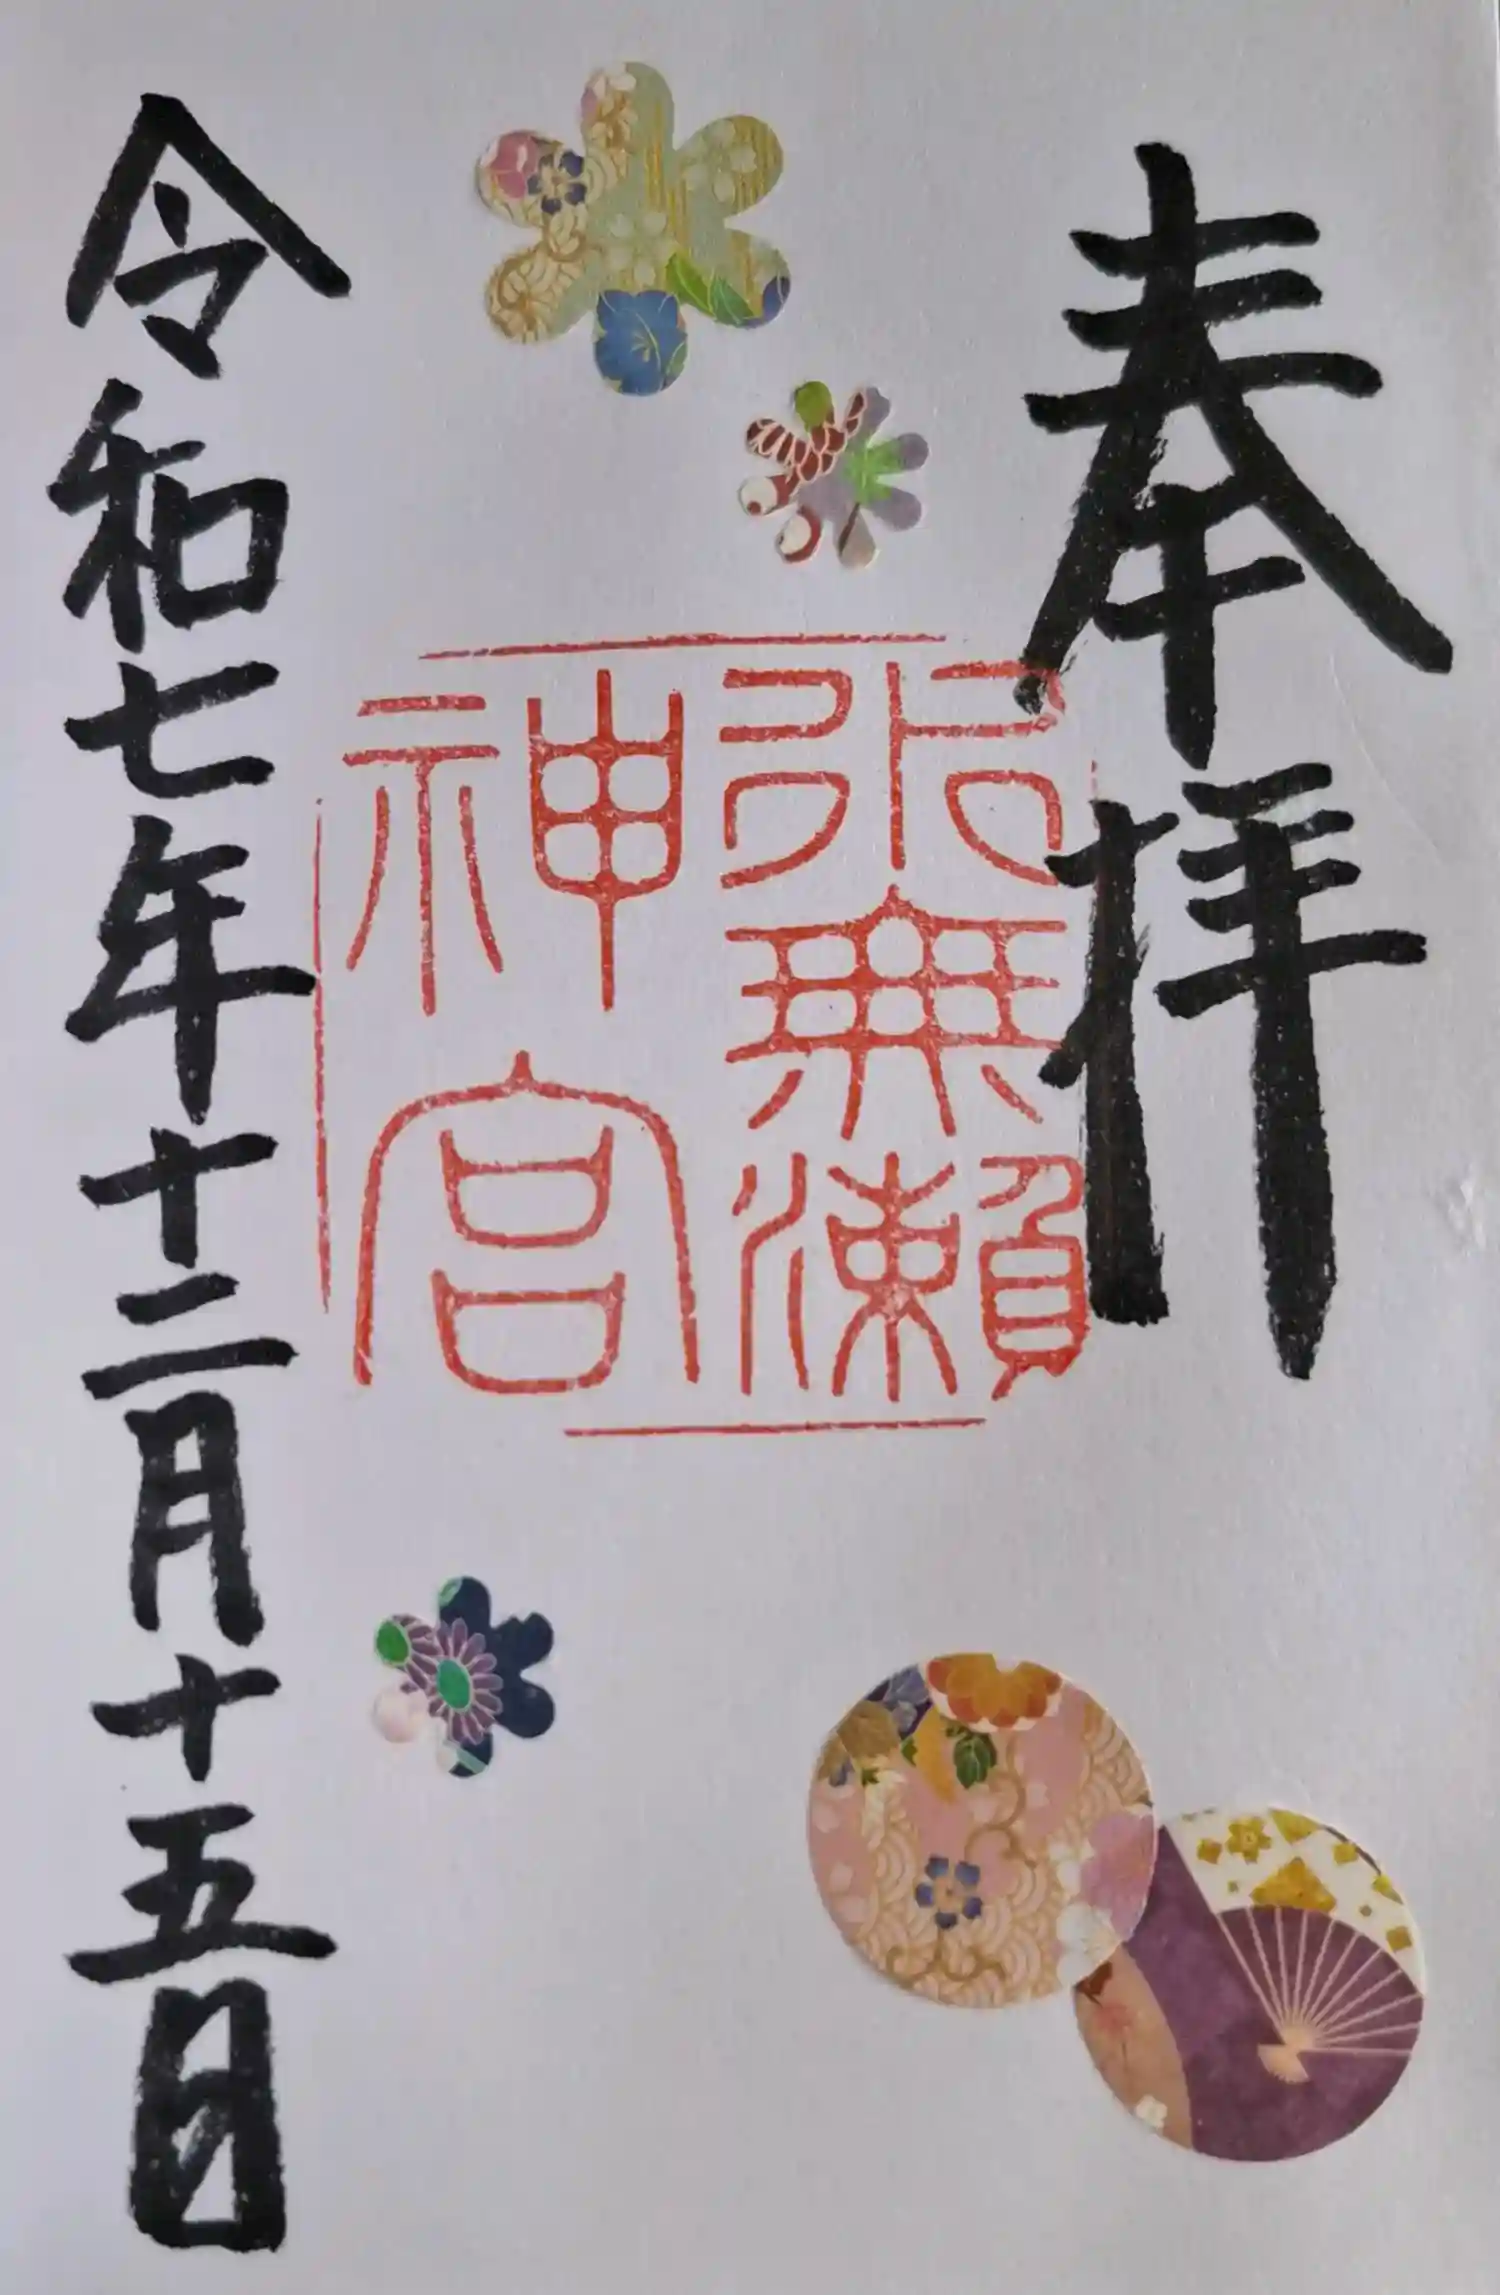 奉拝
水無瀬
神宮
令和七年十二月十五日